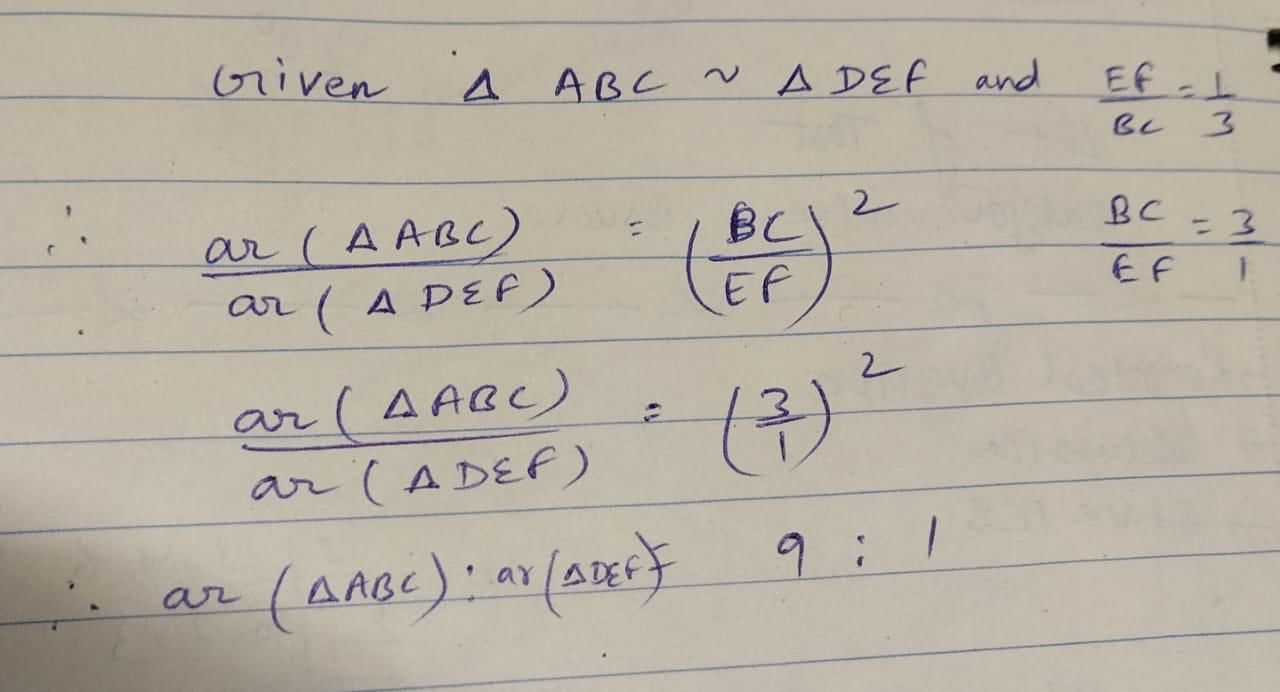 Given Δ ABC ~ Δ DEF and EF/BC = 1/3
∴ ar (Δ ABC) / ar (Δ DEF) = (BC/EF)² BC/EF = 3/1
ar (Δ ABC) / ar (Δ DEF) = (3/1)²
∴ ar (Δ ABC) : ar (Δ DEF) = 9 : 1